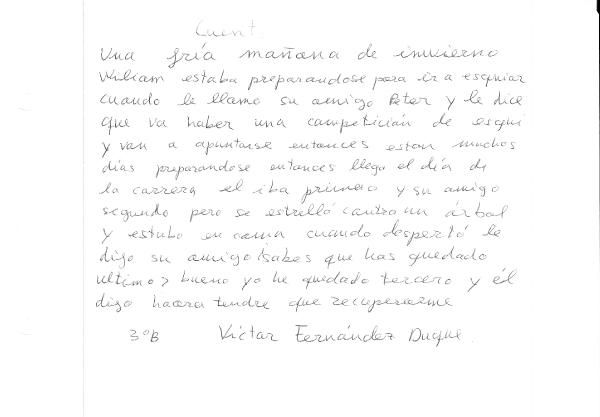 Cuent
Una fría mañana de invierno
William estaba preparandose para ir a esquiar
cuando le llamo su amigo Peter y le dice
que va haber una competición de esqui
y van a apuntarse entonces estan muchos
dias preparandose entonces llega el día de
la carrera el iba primero y su amigo
segundo pero se estrelló contra un árbol
y estubo en cama cuando despertó le
dijo su amigo ¿sabes que has quedado
ultimo? bueno yo he quedado tercero y él
dijo haora tendre que recuperarme
3ºB Víctor Fernández Duque